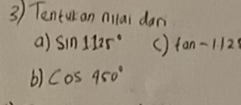 3) Tentukan nilai dari
a) sin 1125° c) tan -112
b) Cos 950°